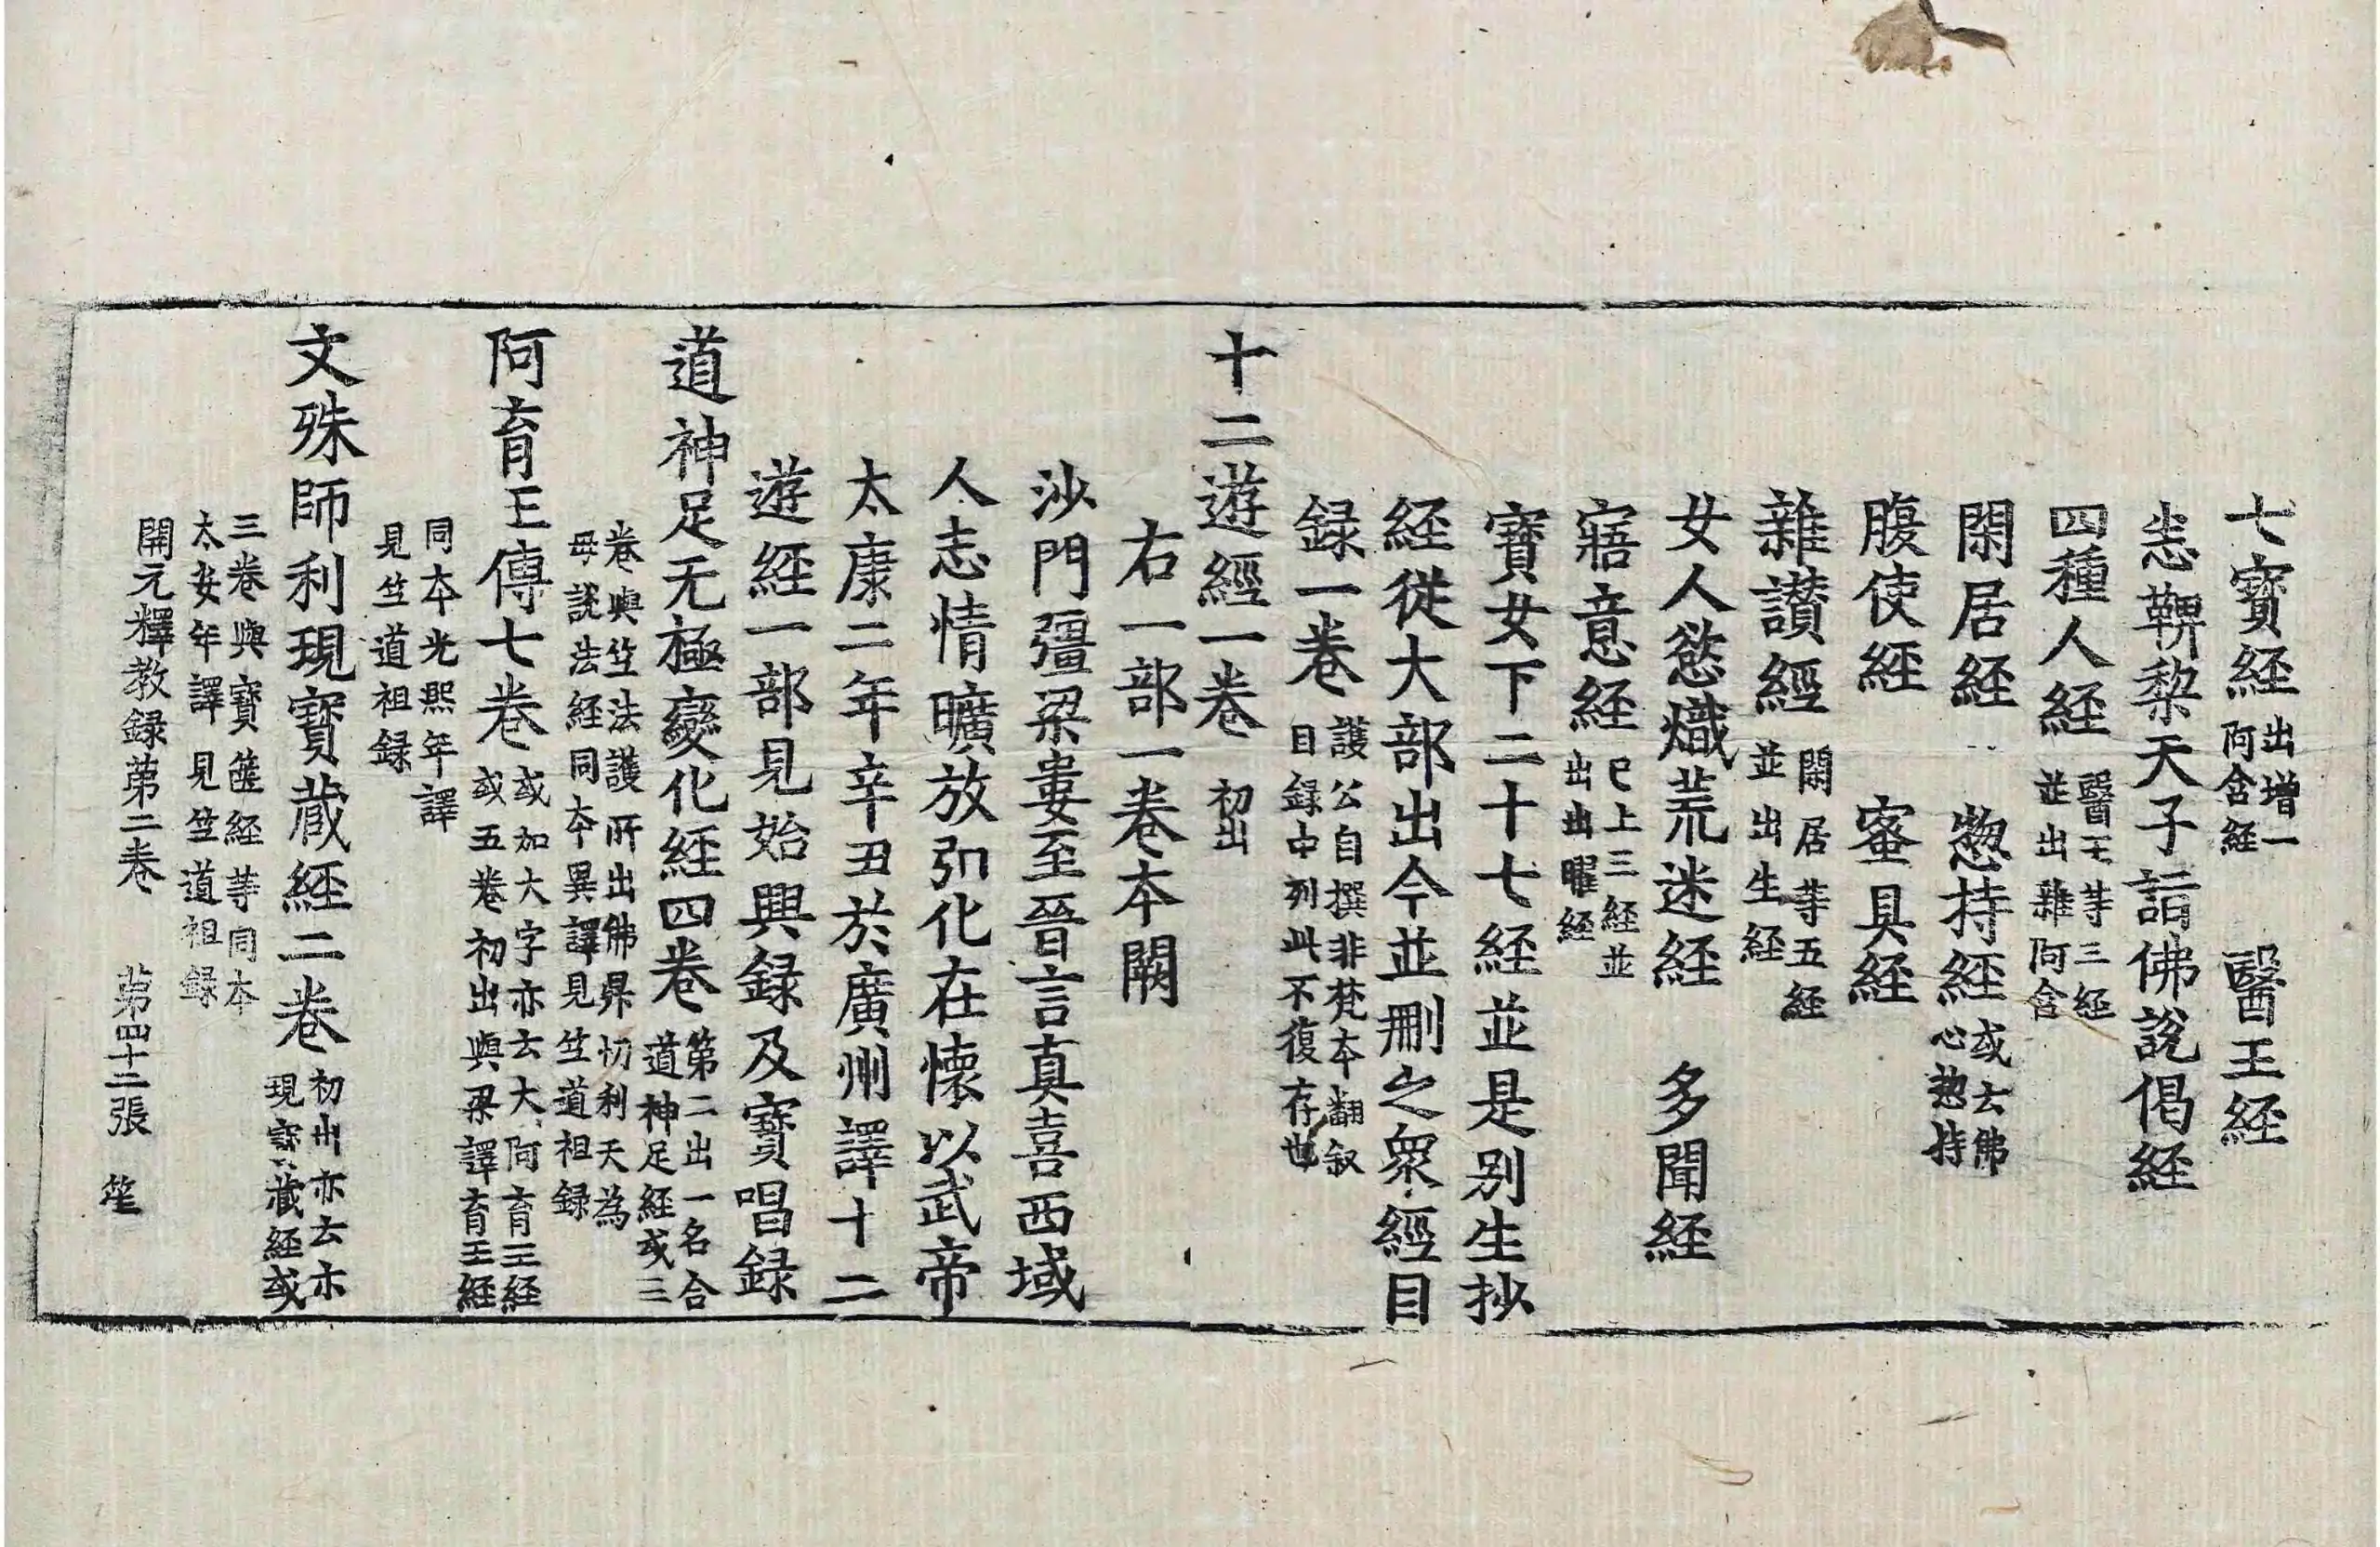 七寶経出增一阿含経 醫王経
恙鞞梨天子詣佛說偈経
四種人経醫王等三経並出雜阿含
閑居経 惣持経或云佛心惣持
腹使経 蜜具経
雜讃經閑居等五経並出生経
女人慾熾荒迷経 多聞経
寤意経已上三経並出出曜経
寶女下二十七経並是别生抄
経從大部出今並刪之衆經目
録一卷護公自撰非梵本翻叙目録中列此不復存也
十二遊經一卷初出
右一部一卷本闕
沙門彊梁婁至晉言真喜西域
人志情曠放弘化在懷以武帝
太康二年辛丑於廣州譯十二
遊経一部見始興録及寶唱録
道神足无極變化経四卷第二出一名合道神足経或三
卷與竺法護所出佛昇忉利天為母說法経同本異譯見竺道祖録
阿育王傳七卷或加大字亦云大阿育王経或五卷初出與梁譯育王経
同本光熙年譯見竺道祖録
文殊師利現寶蔵経二卷初出亦云亦現寶蔵経或
三卷與寶篋経等同本太安年譯見竺道祖録
開元釋教録第二卷 第四十二張 笙